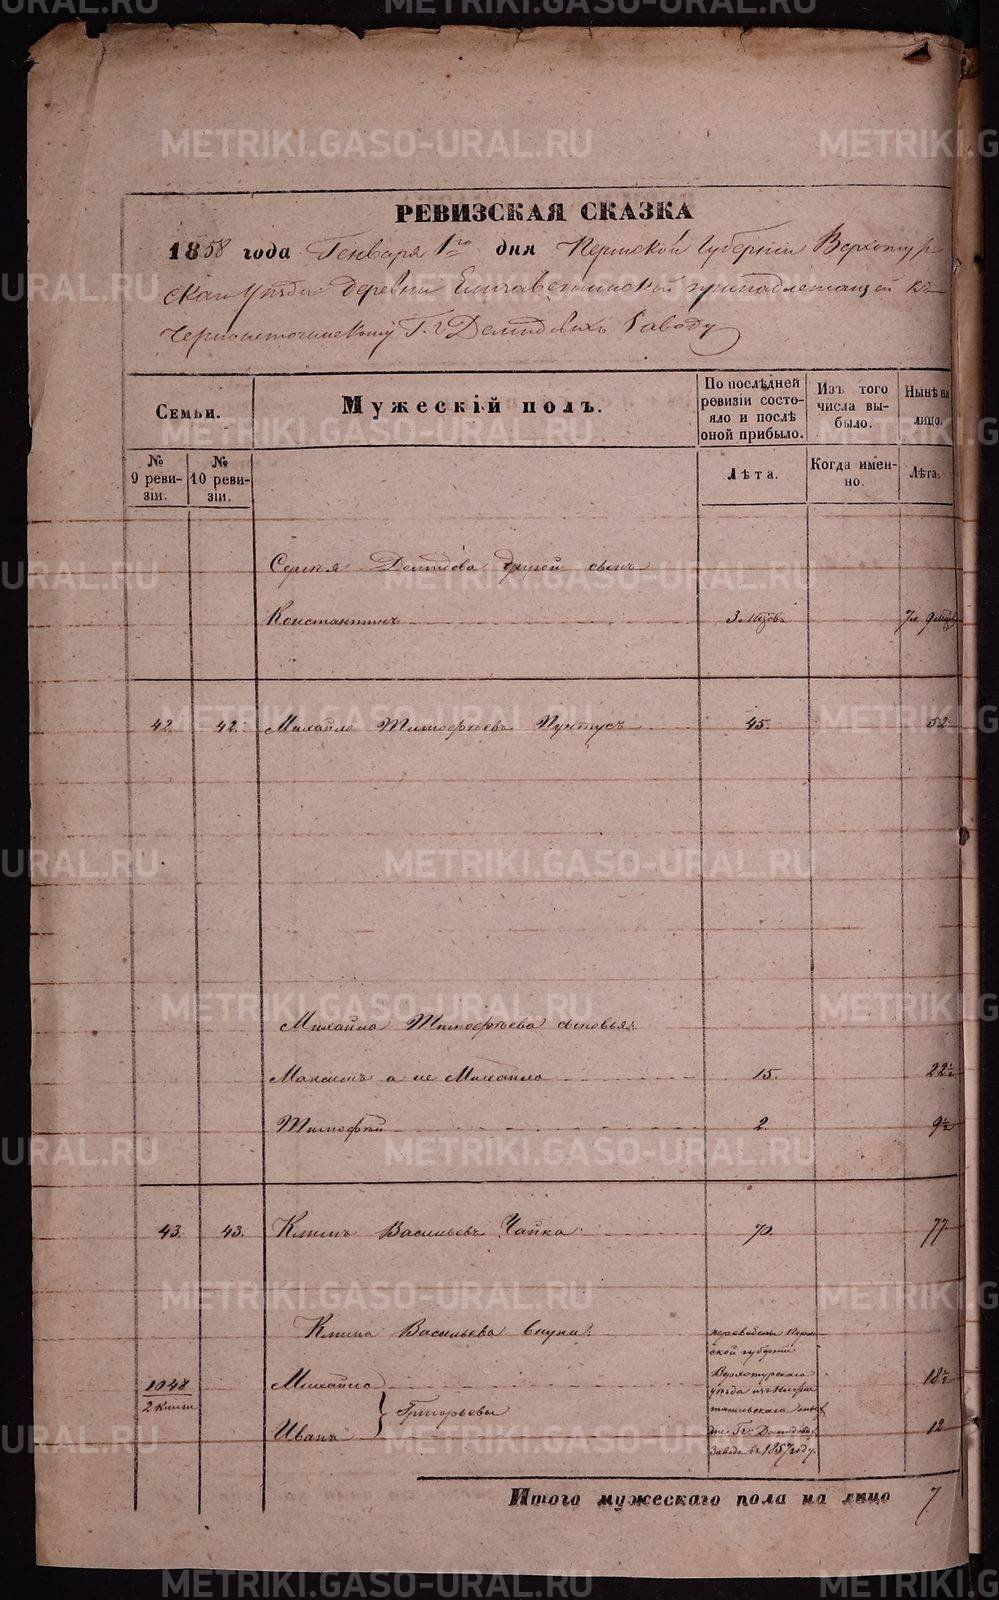 METRIKI.GASO-URAL.RU
РЕВИЗСКАЯ СКАЗКА
1858 года Генваря 1го дня Пермской Губернии Верхотур-
скаго Уѣзда деревни Елизаветинской принадлежащей къ
Черноисточинскому Г.г. Демидовыхъ Заводу
Семьи.
Мужескій полъ.
По послѣдней ревизіи состояло и послѣ оной прибыло.
Изъ того числа выбыло.
Нынѣ на лицо.
№ 9 ревизіи.
№ 10 ревизіи.
Лѣта.
Когда именно.
Лѣта.
Сергѣя Демидова другой сынъ
Константинъ 3 мѣсов. 7 л. 9 мѣс
42. 42. Михайло Тимофѣевъ Пунтусъ 45. 52
Михайла Тимофѣева сыновья:
Максимъ а не Михайло 15. 22½
Тимофѣй 2. 9½
43. 43. Климъ Васильевъ Чайка 70. 77
Клима Васильева внуки:
1048 / 2 книги
Михайло 18½
Григорьевы
Иванъ 12
переведены Перм-
ской губерніи
Верхотурскаго
уѣзда изъ Нижне
тагильскаго
Гг. Демидовыхъ
завода въ 1857 году.
Итого мужескаго пола на лицо 7